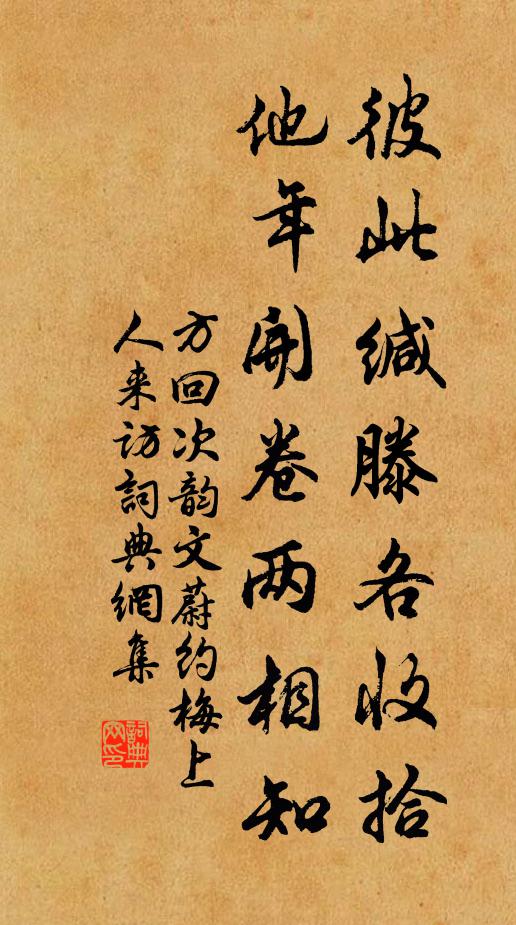 彼此缄滕各收拾
他年開卷两相知
方回次韵文蔚约梅上
人来访詞典網集
詞典网印